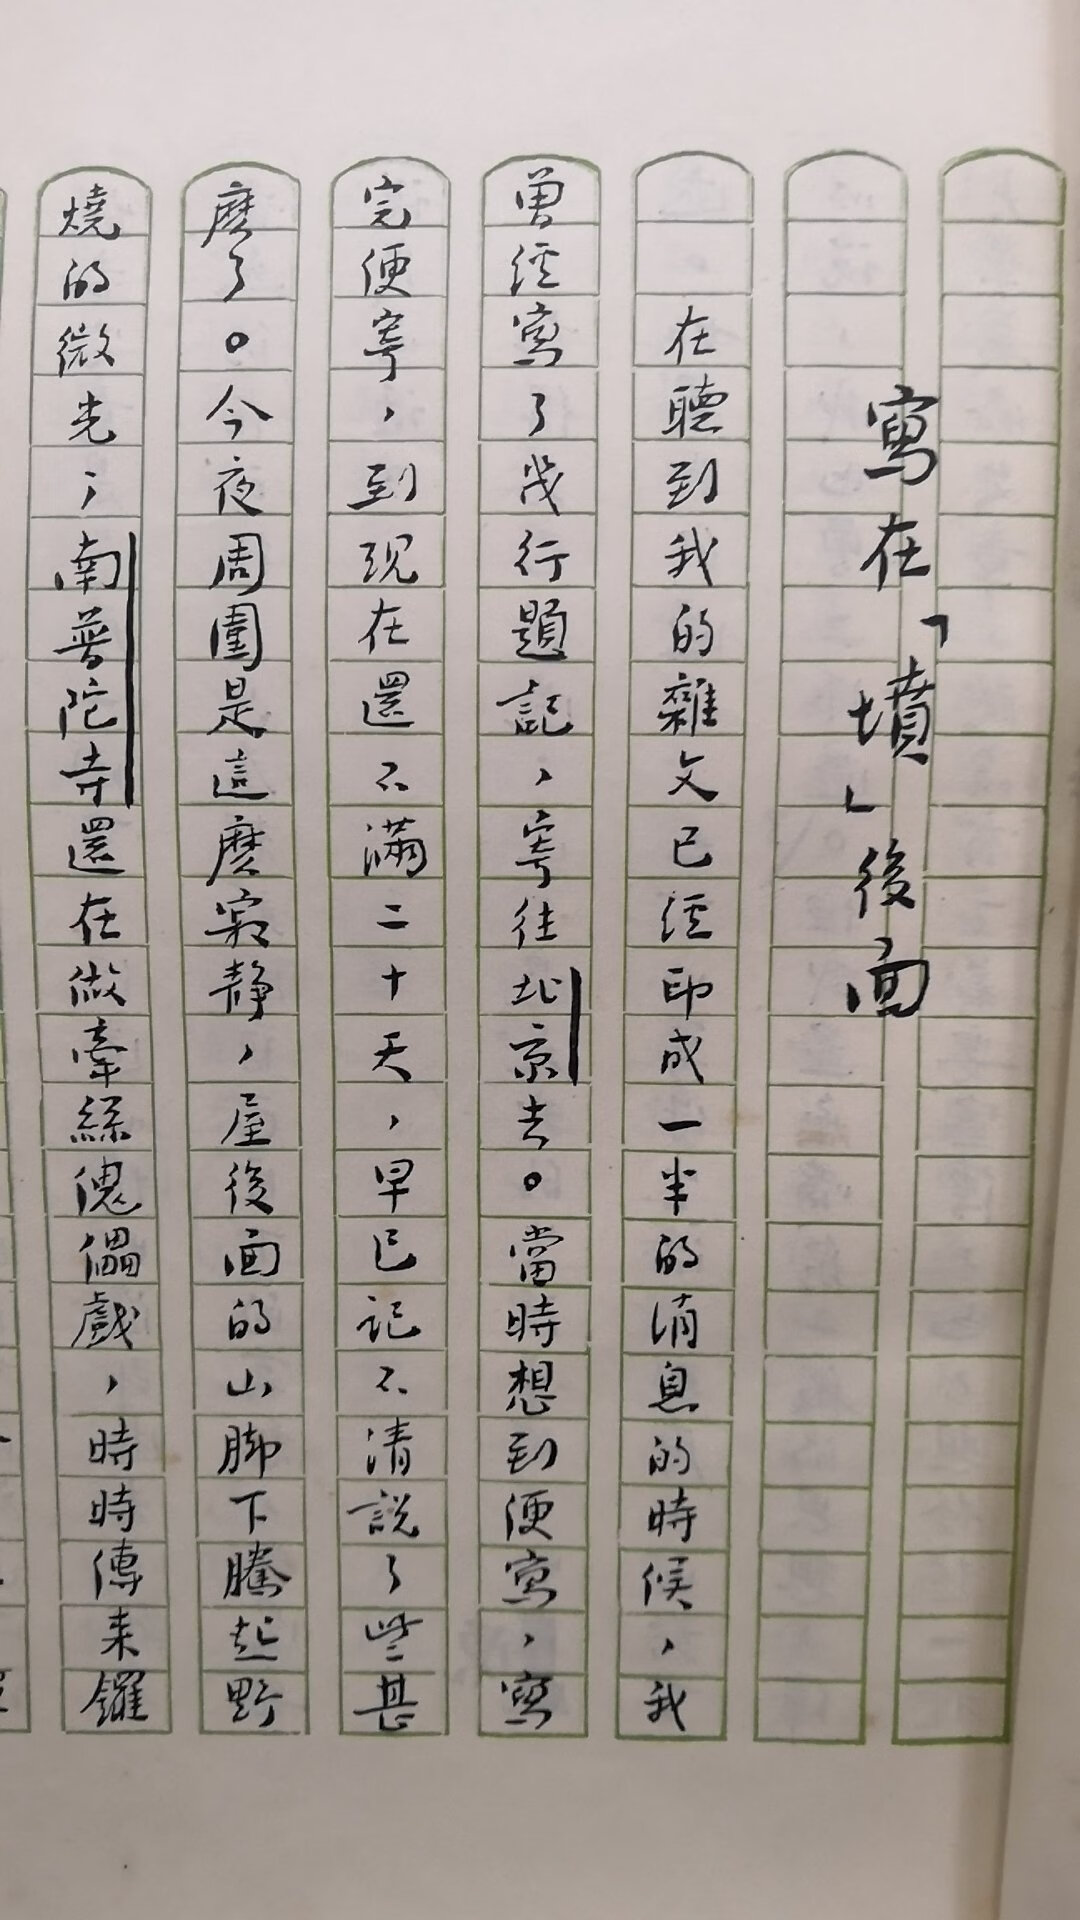 寫在「墳」後面
在聽到我的雜文已經印成一半的消息的時候，我
曾經寫了幾行題記，寄往北京去。當時想到便寫，寫
完便寄，到現在還不滿二十天，早已記不清說了些甚
麽了。今夜周圍是這麽寂静，屋後面的山脚下騰起野
燒的微光；南普陀寺還在做牽絲傀儡戲，時時傳来鑼